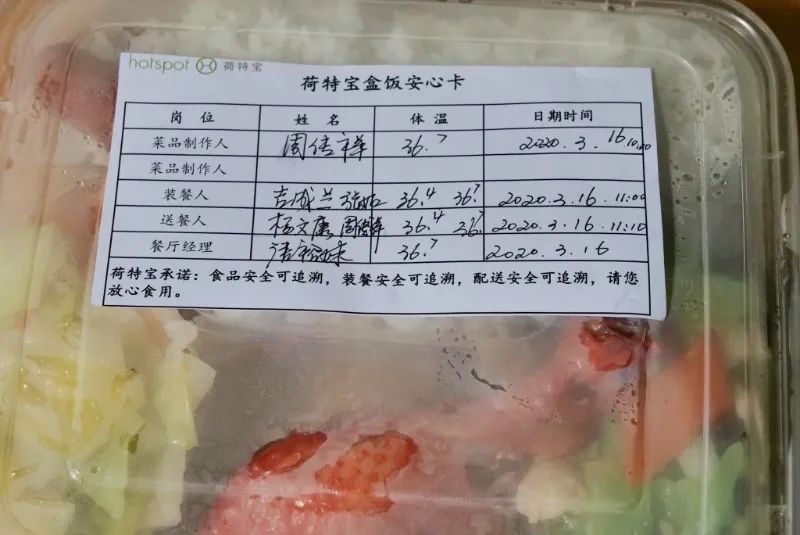 hotspot 荷特宝
荷特宝盒饭安心卡
岗 位 姓 名 体 温 日期时间
菜品制作人 周传祥 36.7 2020.3.16.10:00
菜品制作人
装餐人 吉成兰 36.4 36.7 2020.3.16.11:00
送餐人 杨文康 周传祥 36.4 36.7 2020.3.16.11:10
餐厅经理 36.7 2020.3.16
荷特宝承诺：食品安全可追溯，装餐安全可追溯，配送安全可追溯，请您
放心食用。